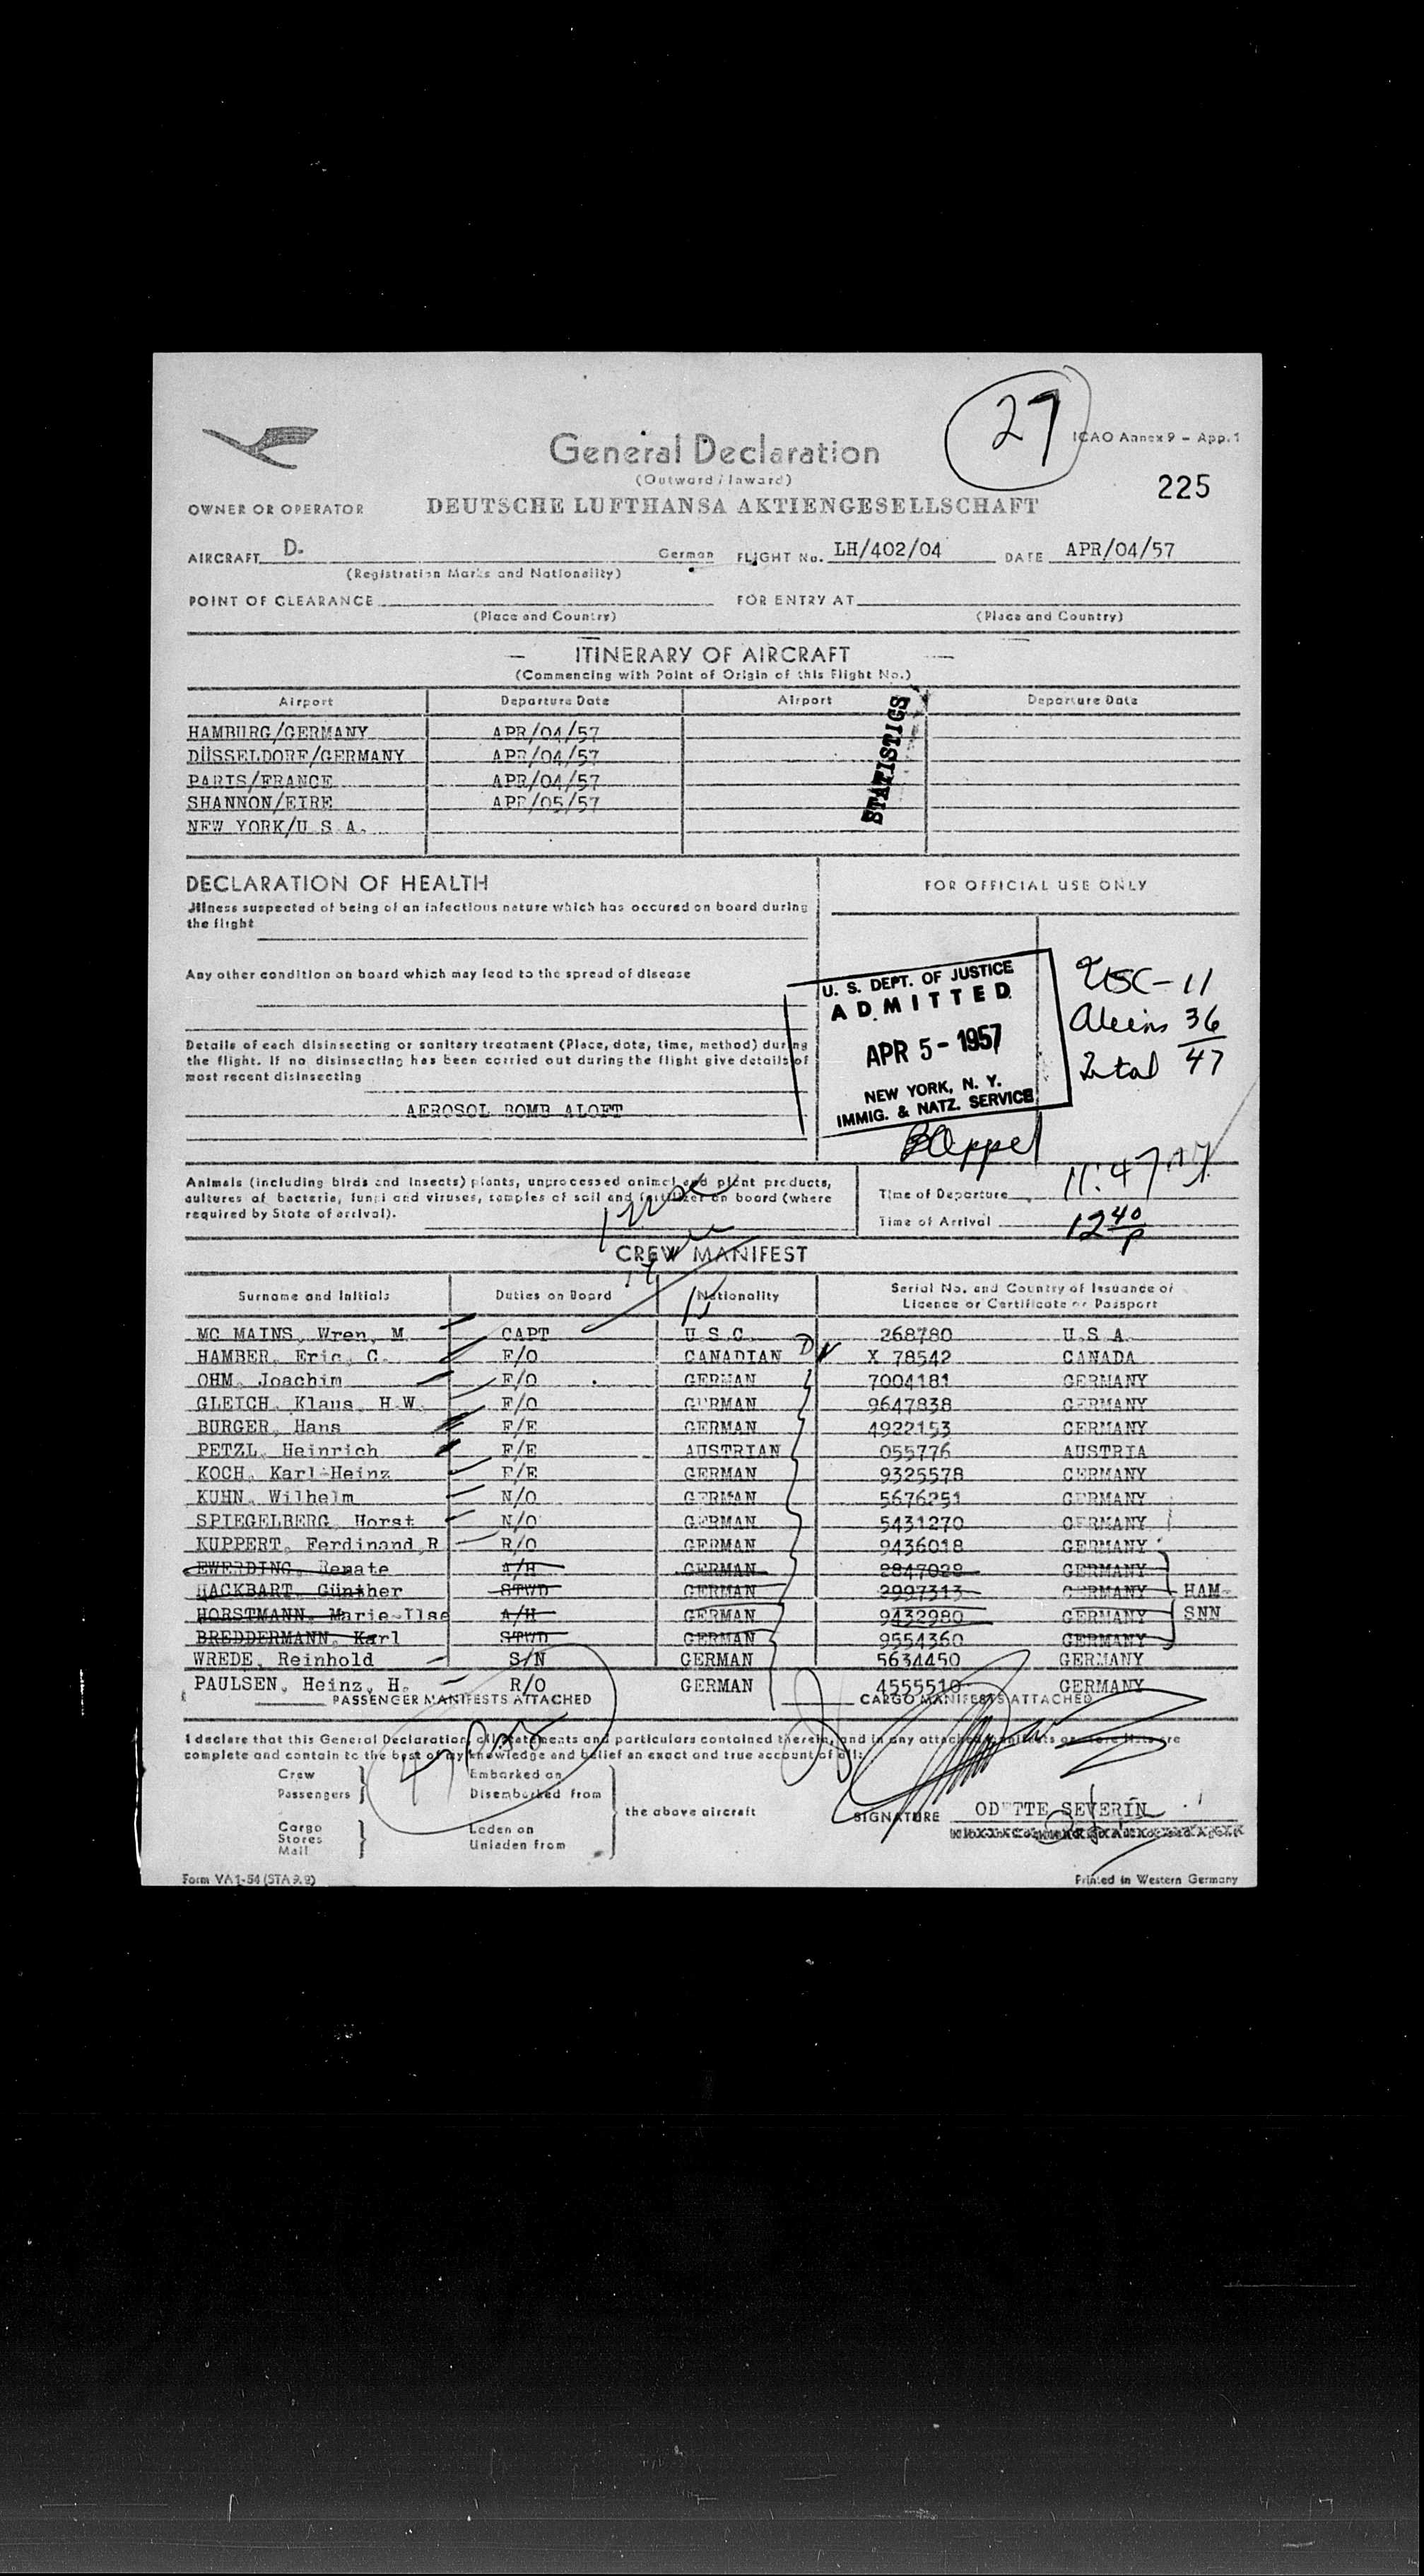 27
General Declaration
ICAO Annex 9 – App. 1
(Outward / Inward)
225
OWNER OR OPERATOR DEUTSCHE LUFTHANSA AKTIENGESELLSCHAFT
AIRCRAFT D. German FLIGHT No. LH/402/04 DATE APR/04/57
(Registration Marks and Nationality)
POINT OF CLEARANCE FOR ENTRY AT
(Place and Country) (Place and Country)
ITINERARY OF AIRCRAFT
(Commencing with Point of Origin of this Flight No.)
Airport Departure Date Airport Departure Date
STATISTICS
HAMBURG/GERMANY APR/04/57
DÜSSELDORF/GERMANY APR/04/57
PARIS/FRANCE APR/04/57
SHANNON/EIRE APR/05/57
NEW YORK/U.S.A.
DECLARATION OF HEALTH
FOR OFFICIAL USE ONLY
Illness suspected of being of an infectious nature which has occured on board during
the flight
Any other condition on board which may lead to the spread of disease
U. S. DEPT. OF JUSTICE
ADMITTED
APR 5 - 1957
NEW YORK, N. Y.
IMMIG. & NATZ. SERVICE
USC - 11
Aliens 36
Total 47
Details of each disinsecting or sanitary treatment (Place, date, time, method) during
the flight. If no disinsecting has been carried out during the flight give details of
most recent disinsecting
AEROSOL BOMB ALOFT
Animals (including birds and insects) plants, unprocessed animal and plant products,
cultures of bacteria, fungi and viruses, samples of soil and fertilizer on board (where
required by State of arrival).
Time of Departure 11:47
Time of Arrival 12 40 P
CREW MANIFEST
Surname and Initials Duties on Board Nationality Serial No. and Country of Issuance of
Licence or Certificate or Passport
MC MAINS, Wren, M. CAPT U.S.C. 268780 U.S.A.
HAMBER, Eric, C. F/O CANADIAN X 78542 CANADA
OHM, Joachim F/O GERMAN 7004181 GERMANY
GLEICH, Klaus, H.W. F/O GERMAN 9647838 GERMANY
BURGER, Hans F/E GERMAN 4922153 GERMANY
PETZL, Heinrich F/E AUSTRIAN 055776 AUSTRIA
KOCH, Karl-Heinz F/E GERMAN 9325578 GERMANY
KUHN, Wilhelm N/O GERMAN 5676251 GERMANY
SPIEGELBERG, Horst N/O GERMAN 5431270 GERMANY
KUPPERT, Ferdinand,R R/O GERMAN 9436018 GERMANY
EWERDING, Renate A/H GERMAN 2847028 GERMANY
HACKBART, Günther STWD GERMAN 2997313 GERMANY HAM-
HORSTMANN, Marie-Ilse A/H GERMAN 9432980 GERMANY SNN
BREDDERMANN, Karl STWD GERMAN 9554360 GERMANY
WREDE, Reinhold S/N GERMAN 5634450 GERMANY
PAULSEN, Heinz, H. R/O GERMAN 4555510 GERMANY
PASSENGER MANIFESTS ATTACHED CARGO MANIFESTS ATTACHED
I declare that this General Declaration, all statements and particulars contained therein, and in any attached manifests or store lists are
complete and contain to the best of my knowledge and belief an exact and true account of all:
Crew
Passengers
Embarked on
Disembarked from
the above aircraft
Cargo
Stores
Mail
Laden on
Unladen from
SIGNATURE ODETTE SEVERIN
Form VA 1-54 (STA 9.9)
Printed in Western Germany